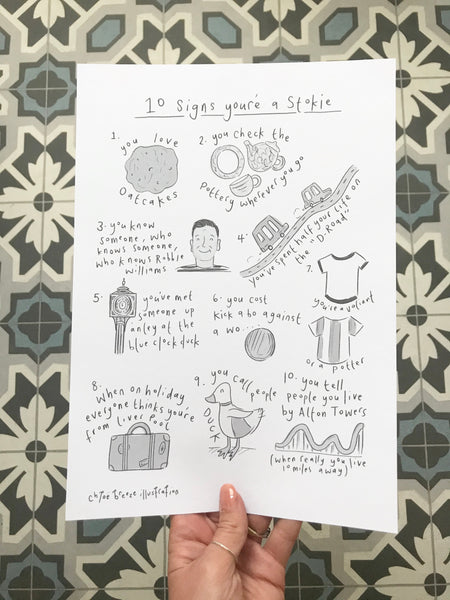 10 Signs you're a Stokie
1.
you love
Oatcakes
2. you check the
Pottery wherever you go
3. you know
someone, who
knows someone,
who knows Robbie
Williams
4.
you've spent half your life on
the "D-Road"
5.
you've met
someone up
anley at the
blue clock duck
6. you cost
kick a bo against
a wo...
7.
you're a valiant
or a potter
8.
When on holiday
everyone thinks you're
from Liverpool
9. you call
people
DUCK
10. you tell
people you live
by Alton Towers
(when really you live
10 miles away)
chloe breeze illustration